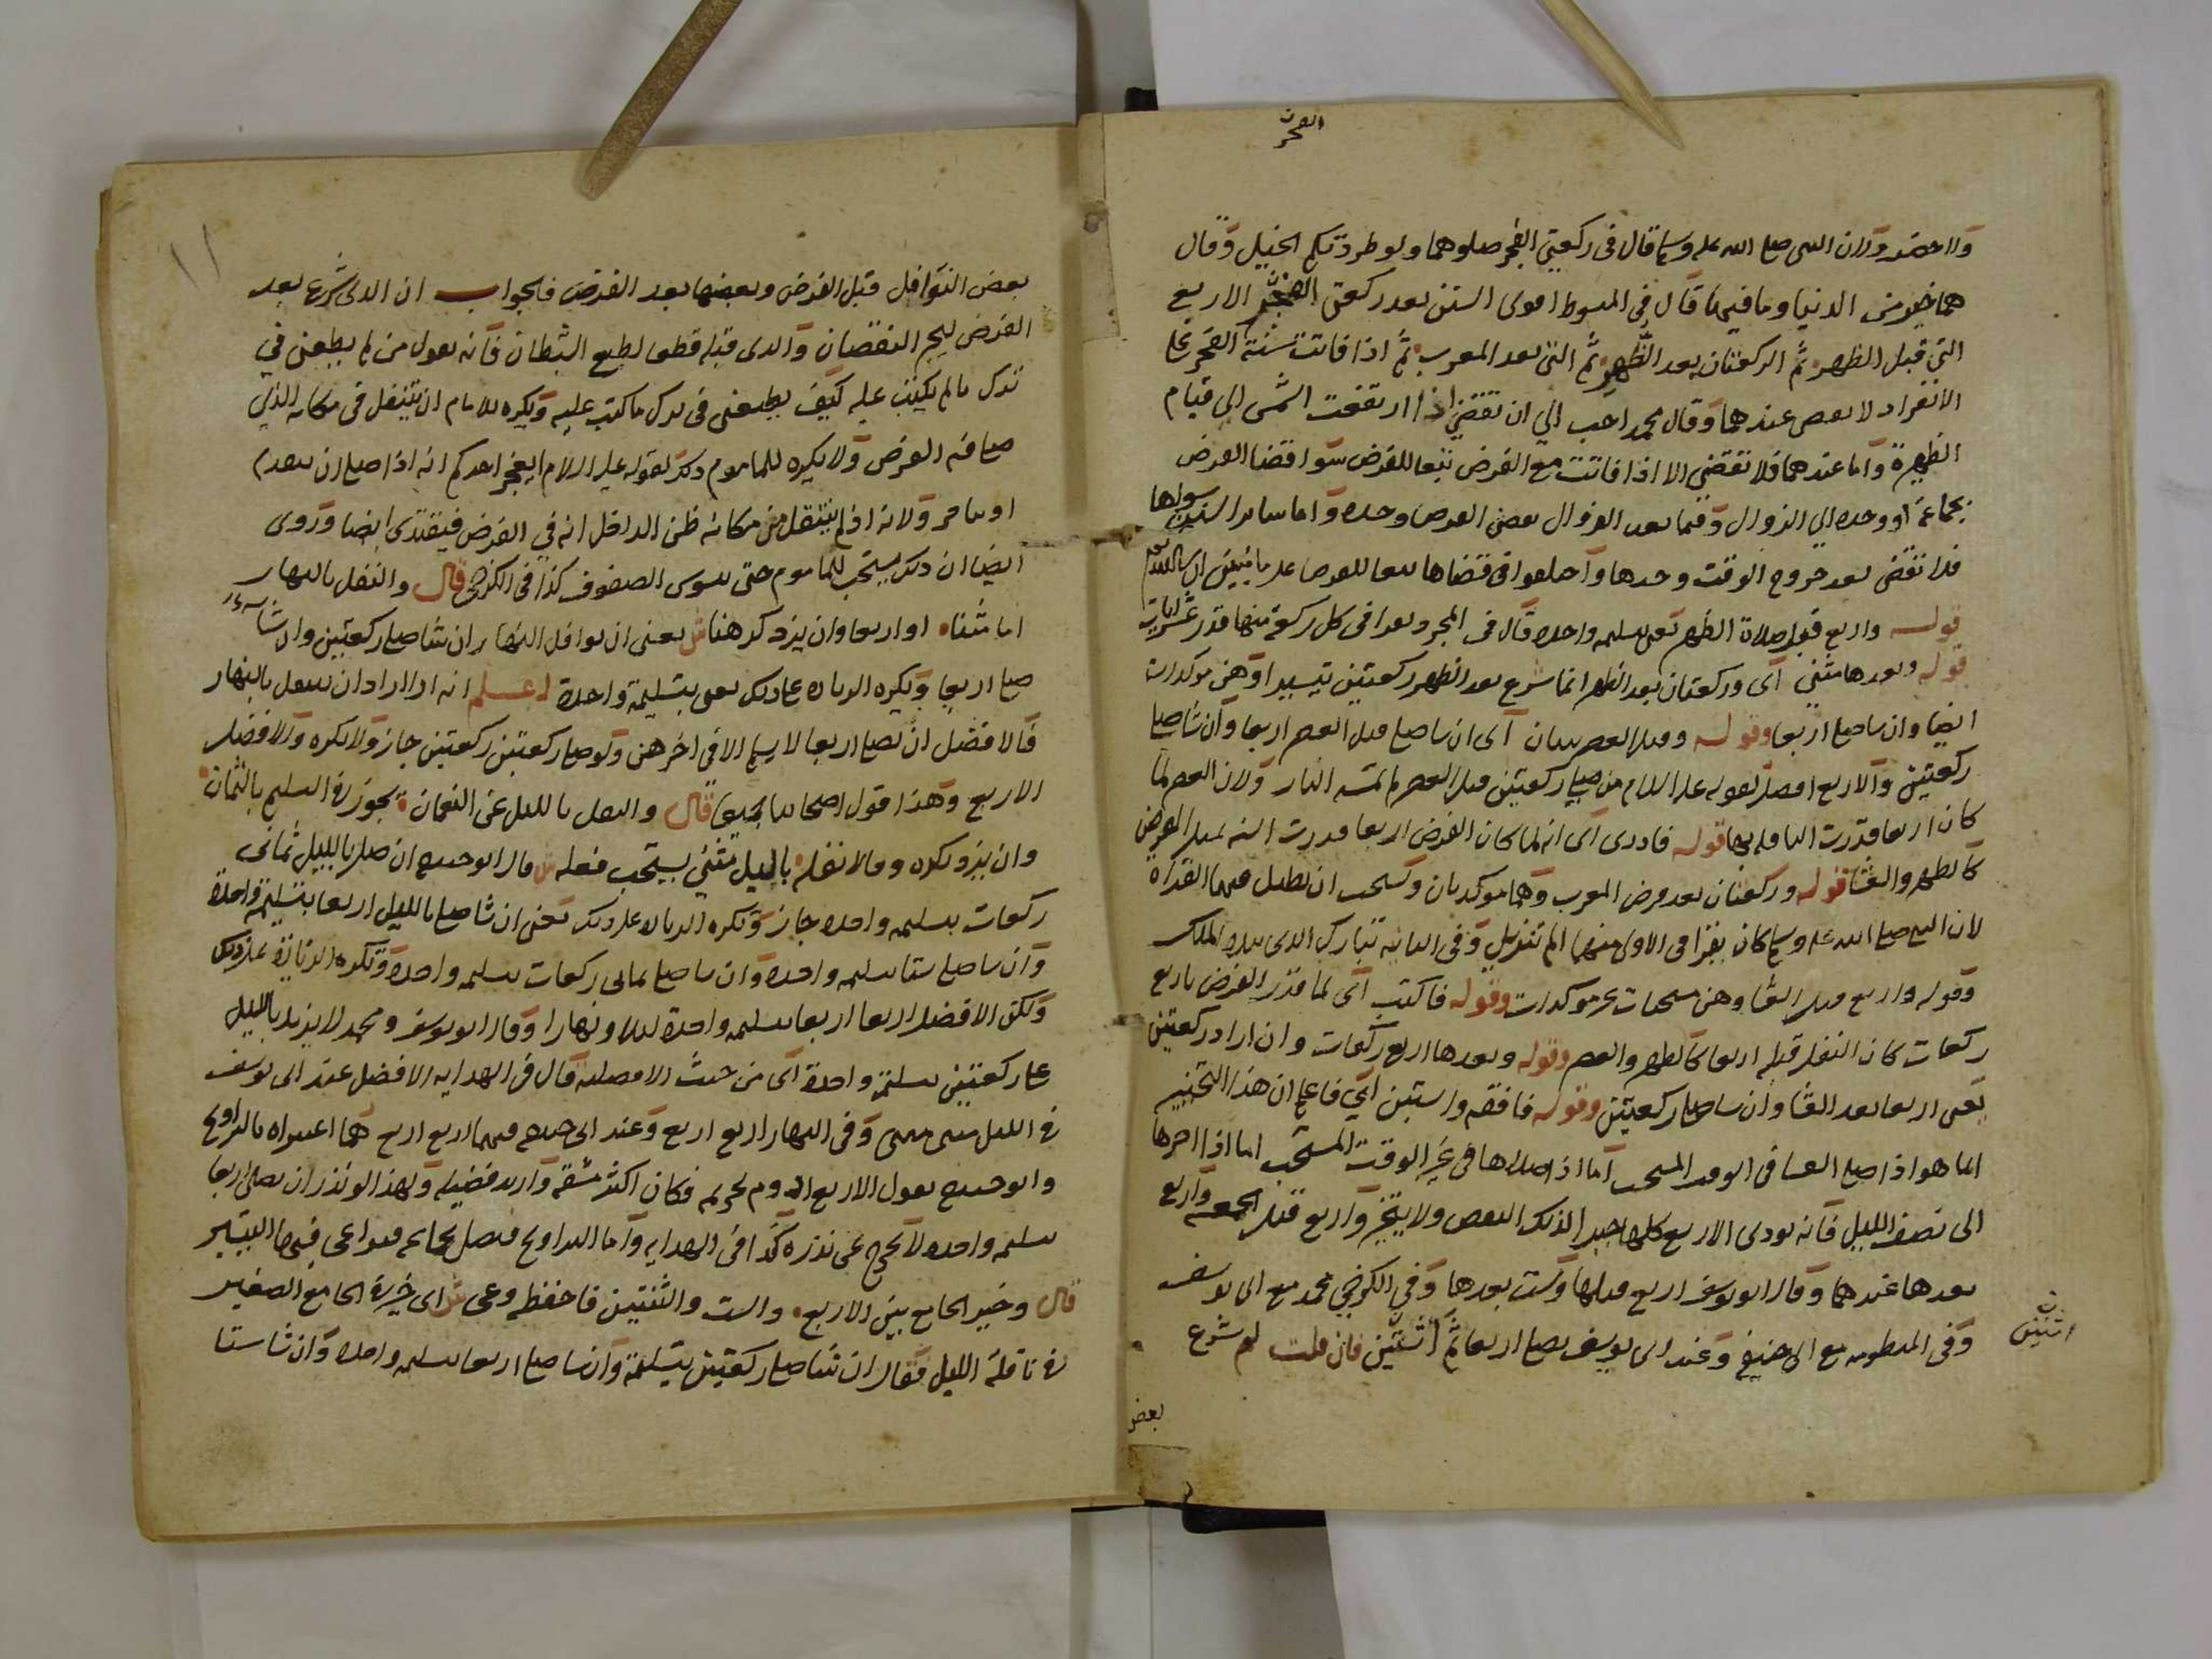 الفجر
ولاحضر ولان النبي صلى الله عليه وسلم قال في ركعتي الفجر صلوهما ولو طردتكم الخيل وقال
هما خير من الدنيا وما فيها قال في المبسوط اقوى السنن بعد ركعتي الفجر الاربع
التي قبل الظهر ثم الركعتان بعد الظهر ثم التي بعد المغرب ثم اذا فاتت سنة الفجر على
الانفراد لا تقضى عندهما وقال محمد احب الي ان تقضى اذا ارتفعت الشمس الى قيام
الظهيرة واما عندهما فلا تقضى الا اذا فاتت مع الفرض تبعا للفرض سوا قضا الفرض
بجماعة او وحده الى الزوال وفيما بعد الزوال يقضي الفرض وحده واما سائر السنن سواها
فلا تقضى بعد خروج الوقت وحدها واختلفوا في قضاها تبعا للفرض على ما نبين ان شا الله تعالى
قوله واربع قبل صلاة الظهر يعني بتسليمة واحدة قال في المجرد يقرا في كل ركعة منها قدر عشر ايات
قوله وبعدها مثنى اى وركعتان بعد الظهر انما شرع بعد الظهر ركعتين تيسيرا وهن موكدات
ايضا وان شا صلى اربعا وقوله وقبل العصر سيان اى ان شا صلى قبل العصر اربعا وان شا صلى
ركعتين والاربع افضل لقوله عليه السلام من صلى ركعتين قبل العصر لم تمسه النار ولان العصر لما
كان اربعا قدرت النافلة بها قوله فادرى اى انه لما كان الفرض اربعا قدرت السنة بمثل الفرض
كالظهر والعشا قوله وركعتان بعد فرض المغرب وهما موكدتان ويستحب ان يطيل فيهما القراة
لان النبي صلى الله عليه وسلم كان يقرا في الاولى منهما الم تنزيل وفي الثانية تبارك الذى بيده الملك
وقوله واربع قبل العشا وهن مستحبات غير موكدات وقوله فاكتب اى لما قدر الفرض باربع
ركعات كان النفل قبله اربعا كالظهر والعصر وقوله وبعدها اربع ركعات وان اراد ركعتين
يعني اربعا بعد العشا وان شا صلى ركعتين وقوله فافقه واستبن اي فاعلم ان هذا التخيير
انما هو اذا صلى العشا في الوقت المستحب اما اذا صلاها في غير الوقت المستحب اما اذا اخرها
الى نصف الليل فانه يودى الاربع كلها جبرا لذلك النقص ولا يتخير واربع قبل الجمعة واربع
بعدها عندهما وقال ابو يوسف اربع قبلها وست بعدها وفي الكرخي محمد مع ابي يوسف
وفي المنظومة مع ابي حنيفة وعند ابي يوسف يصلي اربعا ثم اثنتين فان قلت لم شرع
اثنتين
بعض
١١
بعض النوافل قبل الفرض وبعضها بعد الفرض فالجواب ان الذى شرع بعد
الفرض ليجبر النقصان والذى قبله قطعا لطمع الشيطان فانه يقول من لم يطعني في
ترك ما لم يكتب عليه كيف يطيعني في ترك ما كتب عليه ويكره للامام ان يتنفل في مكانه الذي
صلى فيه الفرض ولا يكره للماموم ذلك لقوله عليه السلام ايعجز احدكم انه اذا صلى ان يتقدم
او يتاخر ولانه اذا لم ينتقل من مكانه ظن الداخل انه في الفرض فيقتدى ايضا وروى
ايضا ان ذلك يستحب للماموم حتى يسوى الصفوف كذا في الكرخي قال والنفل بالنهار ان شاء
اما مثنا او اربعا وان يزد كره هنا ش يعني ان نوافل النهار ان شا صلى ركعتين وان شا
صلى اربعا ويكره الزيادة على ذلك يعني بتسليمة واحدة اعلم انه اذا اراد ان يتنفل بالنهار
فالافضل ان يصلي اربعا لا يسلم الا في اخرهن ولو صلى ركعتين ركعتين جاز ولا يكره والافضل
الاربع وهذا قول اصحابنا جميعا قال والنفل بالليل عن النعمان يجوز في التسليم بالثمان
وان يزد يكره وقالا نفله بالليل مثنى يستحب فعله ش قال ابو حنيفة ان صلى بالليل ثماني
ركعات بتسليمة واحدة جاز ويكره الزيادة على ذلك يعني ان شا صلى بالليل اربعا بتسليمة واحدة
وان شا صلى ستا بتسليمة واحدة وان شا صلى ثماني ركعات بتسليمة واحدة وتكره الزيادة على ذلك
ولكن الافضل اربعا اربعا بتسليمة واحدة ليلا ونهارا وقال ابو يوسف ومحمد لا يزيد بالليل
على ركعتين بتسليمة واحدة اى من حيث الافضلية قال في الهداية الافضل عند ابي يوسف
في الليل مثنى مثنى وفي النهار اربع اربع وعند ابي حنيفة فيهما اربع اربع هما اعتبراه بالتراويح
وابو حنيفة يقول الاربع ادوم تحريمة فكان اكثر مشقة وازيد فضيلة ولهذا لو نذر ان يصلي اربعا
بتسليمة واحدة لا يخرج عن نذره كذا في الهداية واما التراويح فتصلى بجماعة فيراعى فيها التيسير
قال وخير الجامع بين الاربع والست والثنتين فاحفظه وعى ش اى خيره الجامع الصغير
في نافلة الليل فقال ان شا صلى ركعتين بتسليمة وان شا صلى اربعا بتسليمة واحدة وان شا ستا